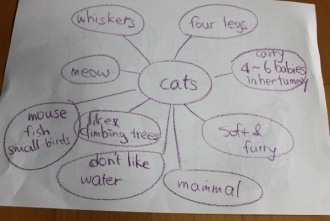 whiskers
four legs
meow
cats
carry
4~6 babies
in her tummy
mouse
fish
small birds
likes
climbing trees
soft &
furry
don't like
water
mammal